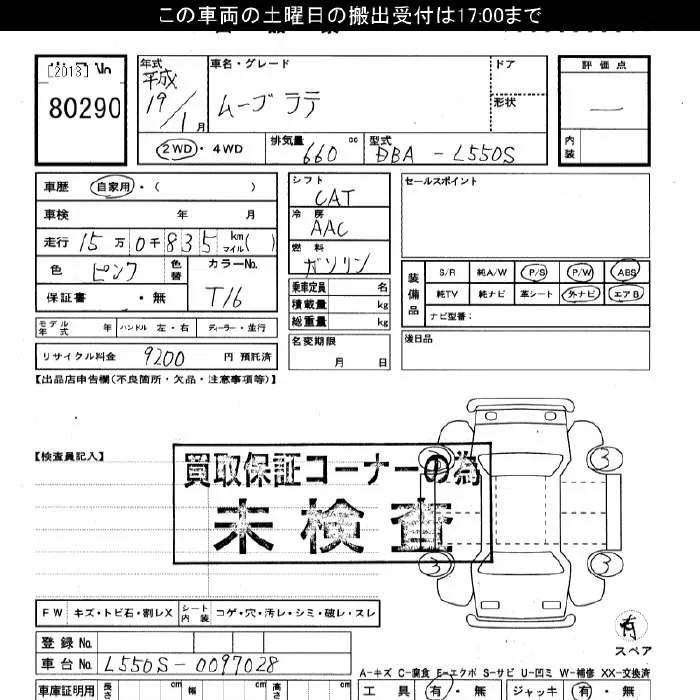 この車両の土曜日の搬出受付は17:00まで
[2013] No
80290
年式 車名・グレード ドア 評価点
平成
19/1月 ムーヴ ラテ 形状 ―
内装
2WD・4WD 排気量 660 cc 型式 DBA-L550S
車歴 自家用・( )
車検 年 月
走行 15万0千835 km マイル( )
色 ピンク 色替 カラーNo. T16
保証書 ・無
モデル年式 年 ハンドル 左・右 ディーラー・並行
リサイクル料金 9200 円 預託済
シフト CAT
冷房 AAC
燃料 ガソリン
乗車定員 名
積載量 kg
総重量 kg
名変期限
月 日
セールスポイント
装備品 S/R 純A/W P/S P/W ABS
純TV 純ナビ 革シート 外ナビ エアB
ナビ型番:
後日品
【出品店申告欄(不良箇所・欠品・注意事項等)】
【検査員記入】
買取保証コーナーの為
未検査
3 3
3 3
有
スペア
FW キズ・トビ石・割レX シート内装 コゲ・穴・汚レ・シミ・破レ・スレ
登録No.
車台No. L550S-0097028
A-キズ C-腐食 E-エクボ S-サビ U-凹ミ W-補修 XX-交換済
車庫証明用 長さ cm 幅 cm 高さ cm 工具 有・無 ジャッキ 有・無